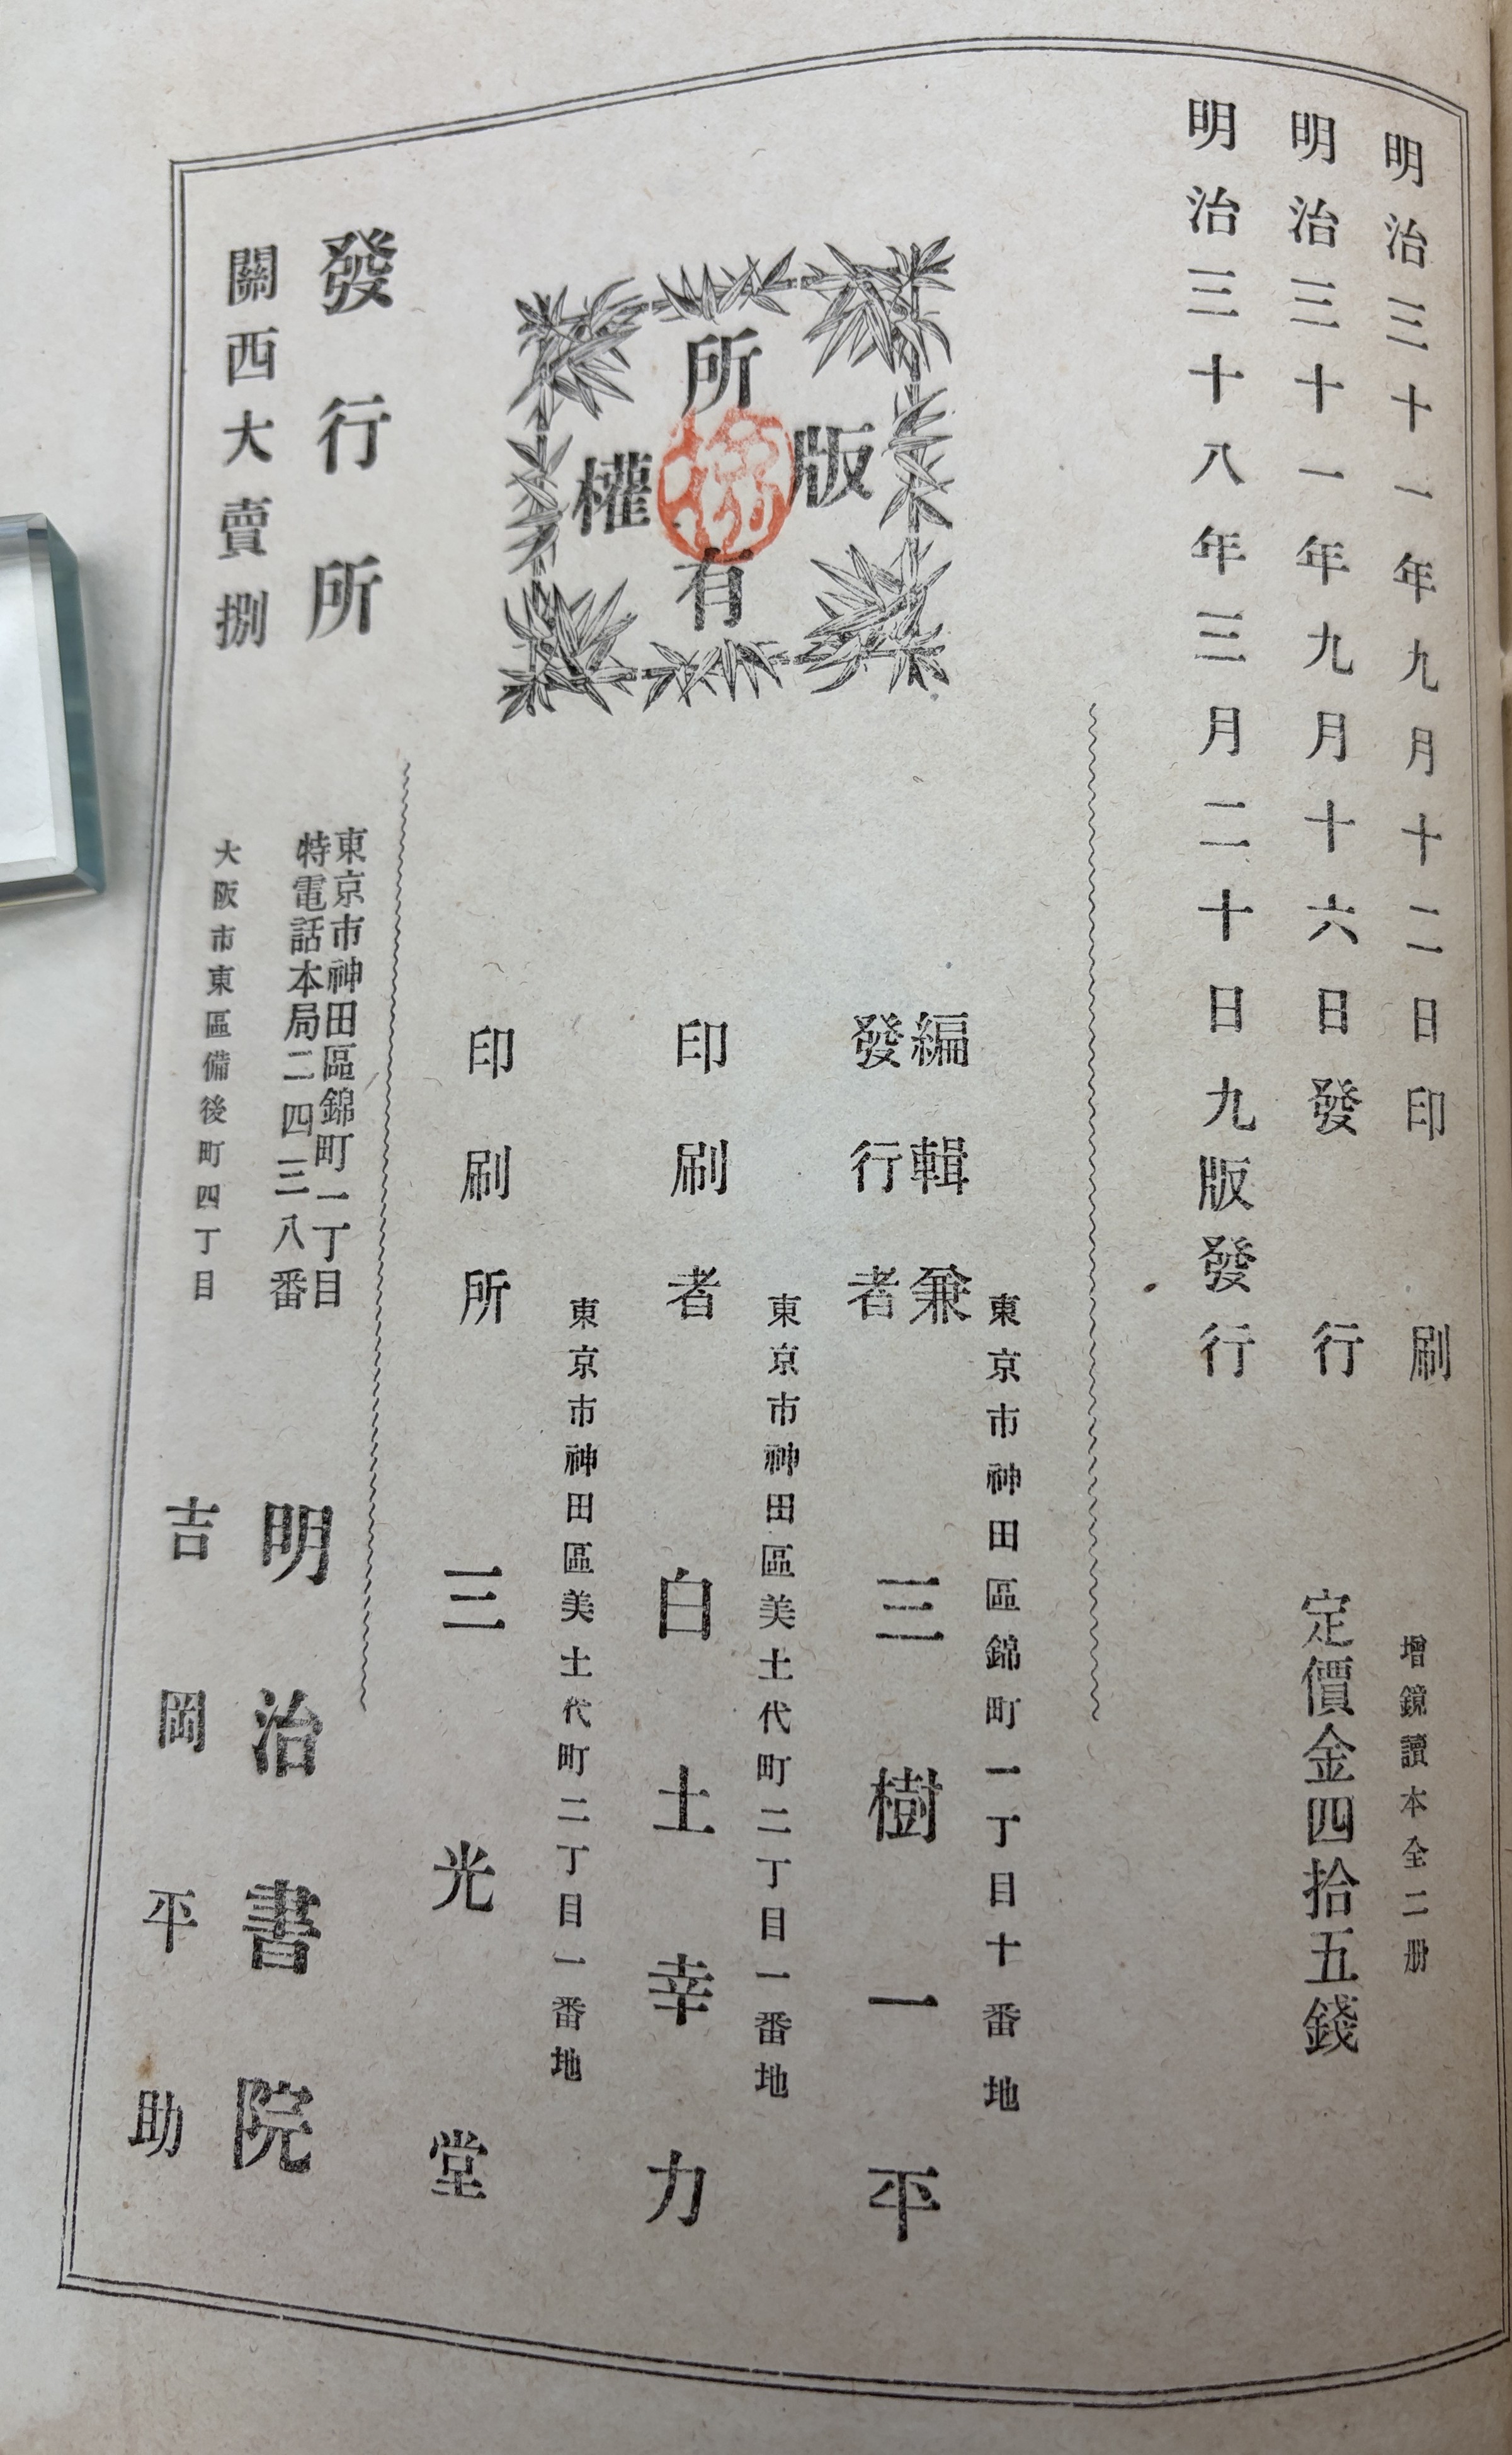 明治三十一年九月十二日印刷
明治三十一年九月十六日發行
明治三十八年三月二十日九版發行
增鏡讀本全二册
定價金四拾五錢
版權所有
東京市神田區錦町一丁目十番地
編輯兼
發行者
三樹一平
東京市神田區美土代町二丁目一番地
印刷者
白土幸力
東京市神田區美土代町二丁目一番地
印刷所
三光堂
發行所
東京市神田區錦町一丁目
特電話本局二四三八番
明治書院
關西大賣捌
大阪市東區備後町四丁目
吉岡平助